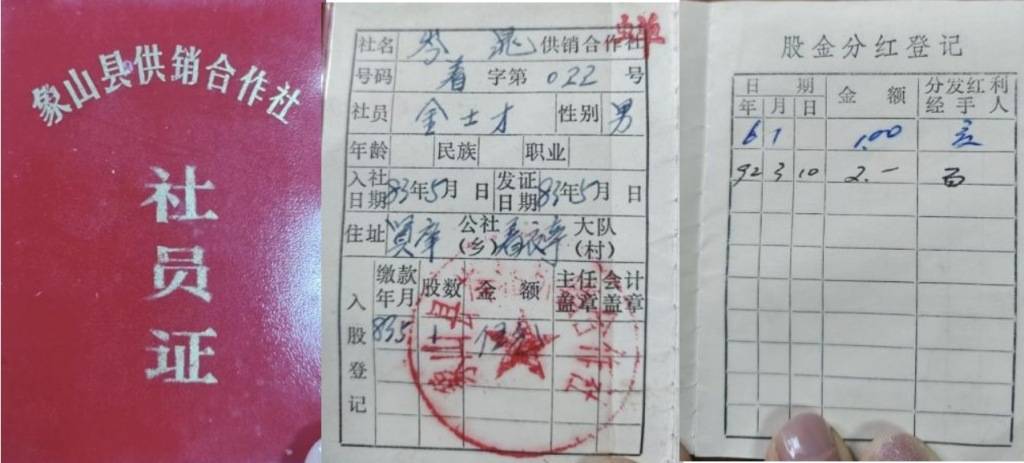 象山县供销合作社
社员证
社名 供销合作社
号码 字第022号
社员 金士才 性别 男
年龄 民族 职业
入社日期 83年5月 日 发证日期 83年5月 日
住址 公社(乡) 大队(村)
入股登记
缴款年月 股数 金额 主任盖章 会计盖章
835
象山县 合作社
股金分红登记
日期 金额 分发红利经手人
年 月 日
6 1 1.00
92 3 10 2.-